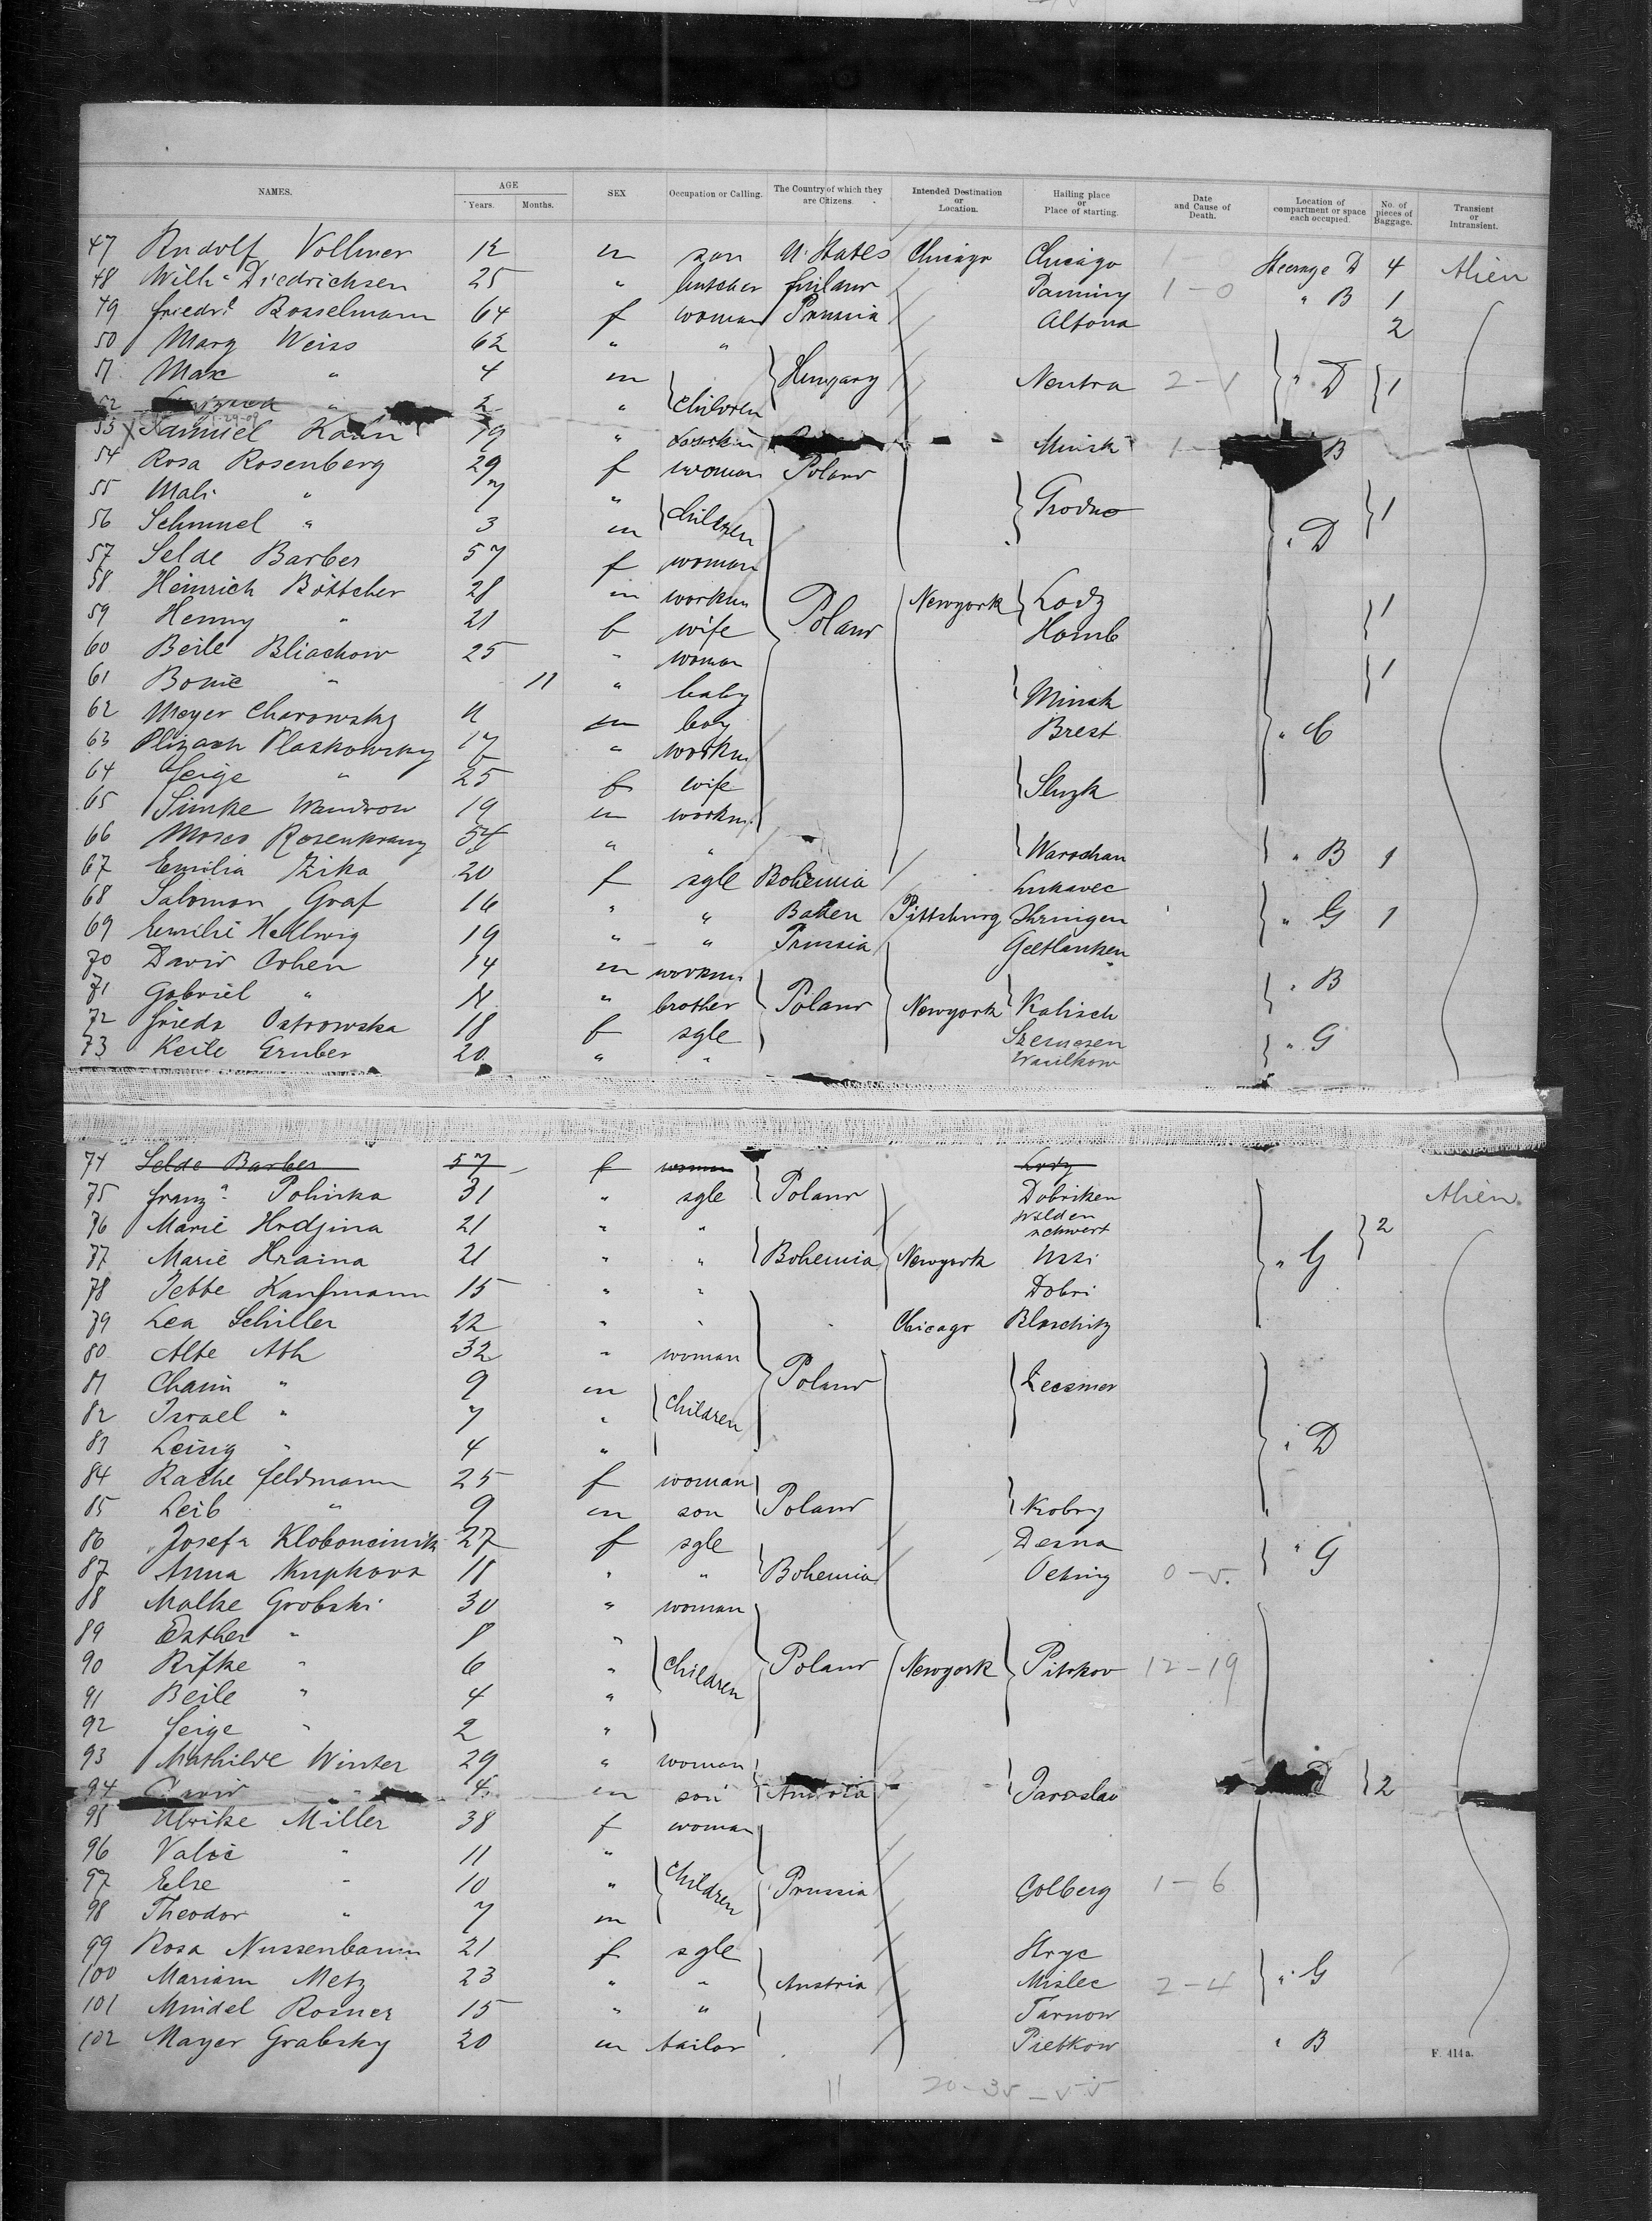 NAMES. AGE SEX Occupation or Calling. The Country of which they are Citizens. Intended Destination or Location. Hailing place or Place of starting. Date and Cause of Death. Location of compartment or space each occupied. No. of pieces of Baggage. Transient or Intransient.
Years. Months.
47 Rudolf Vollmer 12 m son U. States Chicago Chicago Steerage D 4 Alien
48 Willi Diedrichsen 25 " butcher 1-0 " B 1
49 Friedr. Bosselmann 64 f woman Prussia Altona 2
50 Marg Weiss 62 " "
51 Max " 4 m Hungary Neutra 2- " D 1
52 " 2 " children
53 Samuel Kahn 19 " Minsk 1- B
54 Rosa Rosenberg 29 f woman Poland
55 Mali " 7 " children Grodno 1
56 Schmuel " 3 m " D
57 Selde Barber 57 f woman
58 Heinrich Böttcher 28 m workm Poland Newyork Lodz 1
59 Henny " 21 f wife Homb
60 Beile Bliachow 25 " woman 1
61 Bonie " 11 " baby Minsk
62 Meyer Charowsky m boy Brest " C
63 Plaskowsky " workm
64 Feige " 25 f wife Sluzk
65 Simke Wandrow 19 m workm
66 Moses Rosenkranz 54 " " Warschau " B 1
67 Emilia Zika 20 f sgle Bohemia Lukavec
68 Salomon Graf 16 " " Baden Pittsburg Ihringen " G 1
69 Emilie Hellwig 19 " " Prussia Geetlanken
70 David Cohen 14 m workm " B
71 Gabriel " " brother Poland Newyork Kalisch
72 Frieda Ostrowska 18 f sgle
73 Keile Gruber 20 " " Wasilkow " G
74 Selde Barber 57 f woman Lodz
75 Franz. Polinska 31 " sgle Poland Dobriken Alien.
76 Marie Hrdjina 21 " " Wildenschwert 2
77 Marie Hraina 21 " " Bohemia Newyork " G
78 Jette Kaufmann 15 " " Dobri
79 Lea Schiller 22 " " Chicago Blaschitz
80 Alte Ath 32 " woman
81 Chaim " 9 m Poland
82 Israel " 7 " children
83 Leing " 4 " " D
84 Rache Feldmann 25 f woman
85 Leib " 9 m son Poland Kobry
86 Josefa Kloboucinik 27 f sgle Desna " G
87 Anna Krupkova 18 " " Bohemia 0-
88 Malke Grobski 30 " woman
89 Esther " 8 "
90 Rifke " 6 " children Poland Newyork Pitrkov 12-19
91 Beile " 4 "
92 Feige " 2 "
93 Mathilde Winter 29 " woman
94 David " 4 m son Austria Jaroslau D 2
95 Ulrike Miller 38 f woman
96 " 11 "
97 Else " 10 " children Prussia Colberg 1-6
98 Theodor " 7 m
99 Rosa Nussenbaum 21 f sgle Stryc
100 Mariam Metz 23 " " Austria Mislec 2-4 " G
101 Mindel Rosner 15 " " Tarnow
102 Mayer Grabsky 20 m tailor Pietkow " B
F. 414a.
11